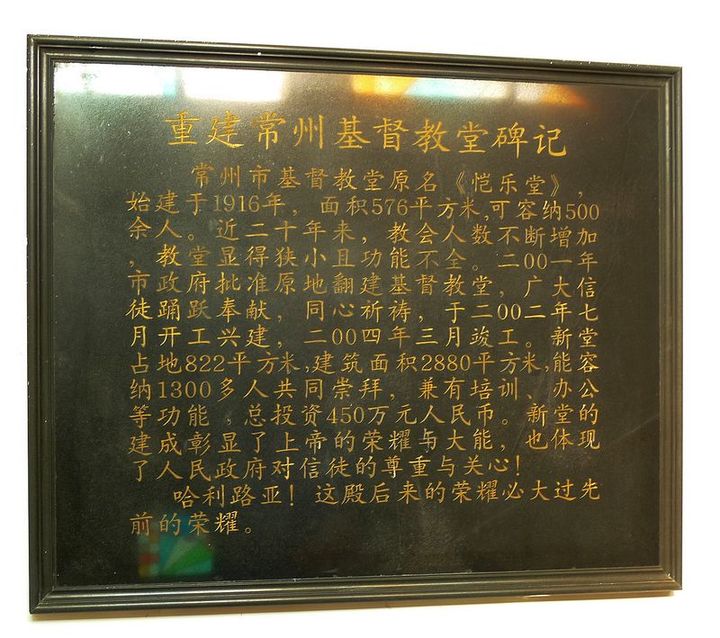 重建常州基督教堂碑记
常州市基督教堂原名《恺乐堂》，
始建于1916年，面积576平方米,可容纳500
余人。近二十年来，教会人数不断增加
，教堂显得狭小且功能不全。二00一年
市政府批准原地翻建基督教堂，广大信
徒踊跃奉献，同心祈祷，于二00二年七
月开工兴建，二00四年三月竣工。新堂
占地822平方米,建筑面积2880平方米,能容
纳1300多人共同崇拜，兼有培训、办公
等功能，总投资450万元人民币。新堂的
建成彰显了上帝的荣耀与大能，也体现
了人民政府对信徒的尊重与关心！
哈利路亚！这殿后来的荣耀必大过先
前的荣耀。